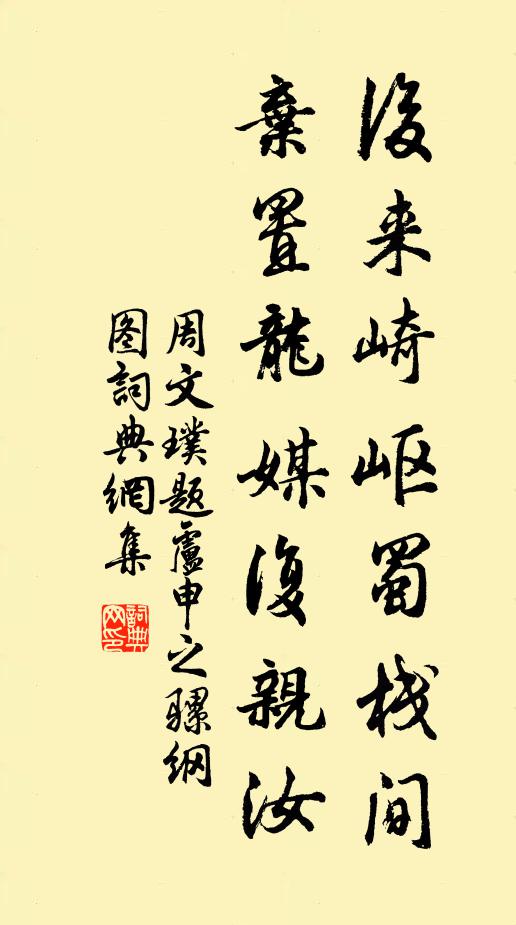 後来崎岖蜀栈间
棄置龍媒復親汝
周文璞题盧申之骡纲
图詞典網集
詞典网印